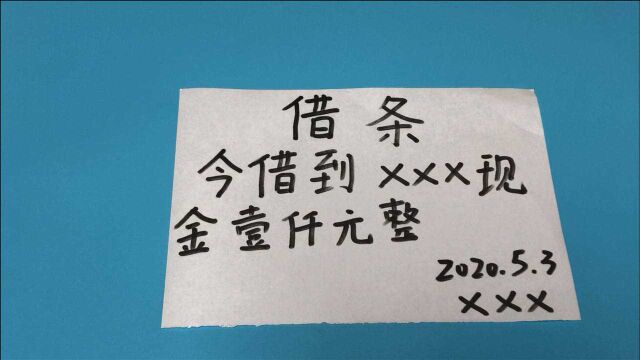 借条
今借到×××现
金壹仟元整
2020.5.3
×××